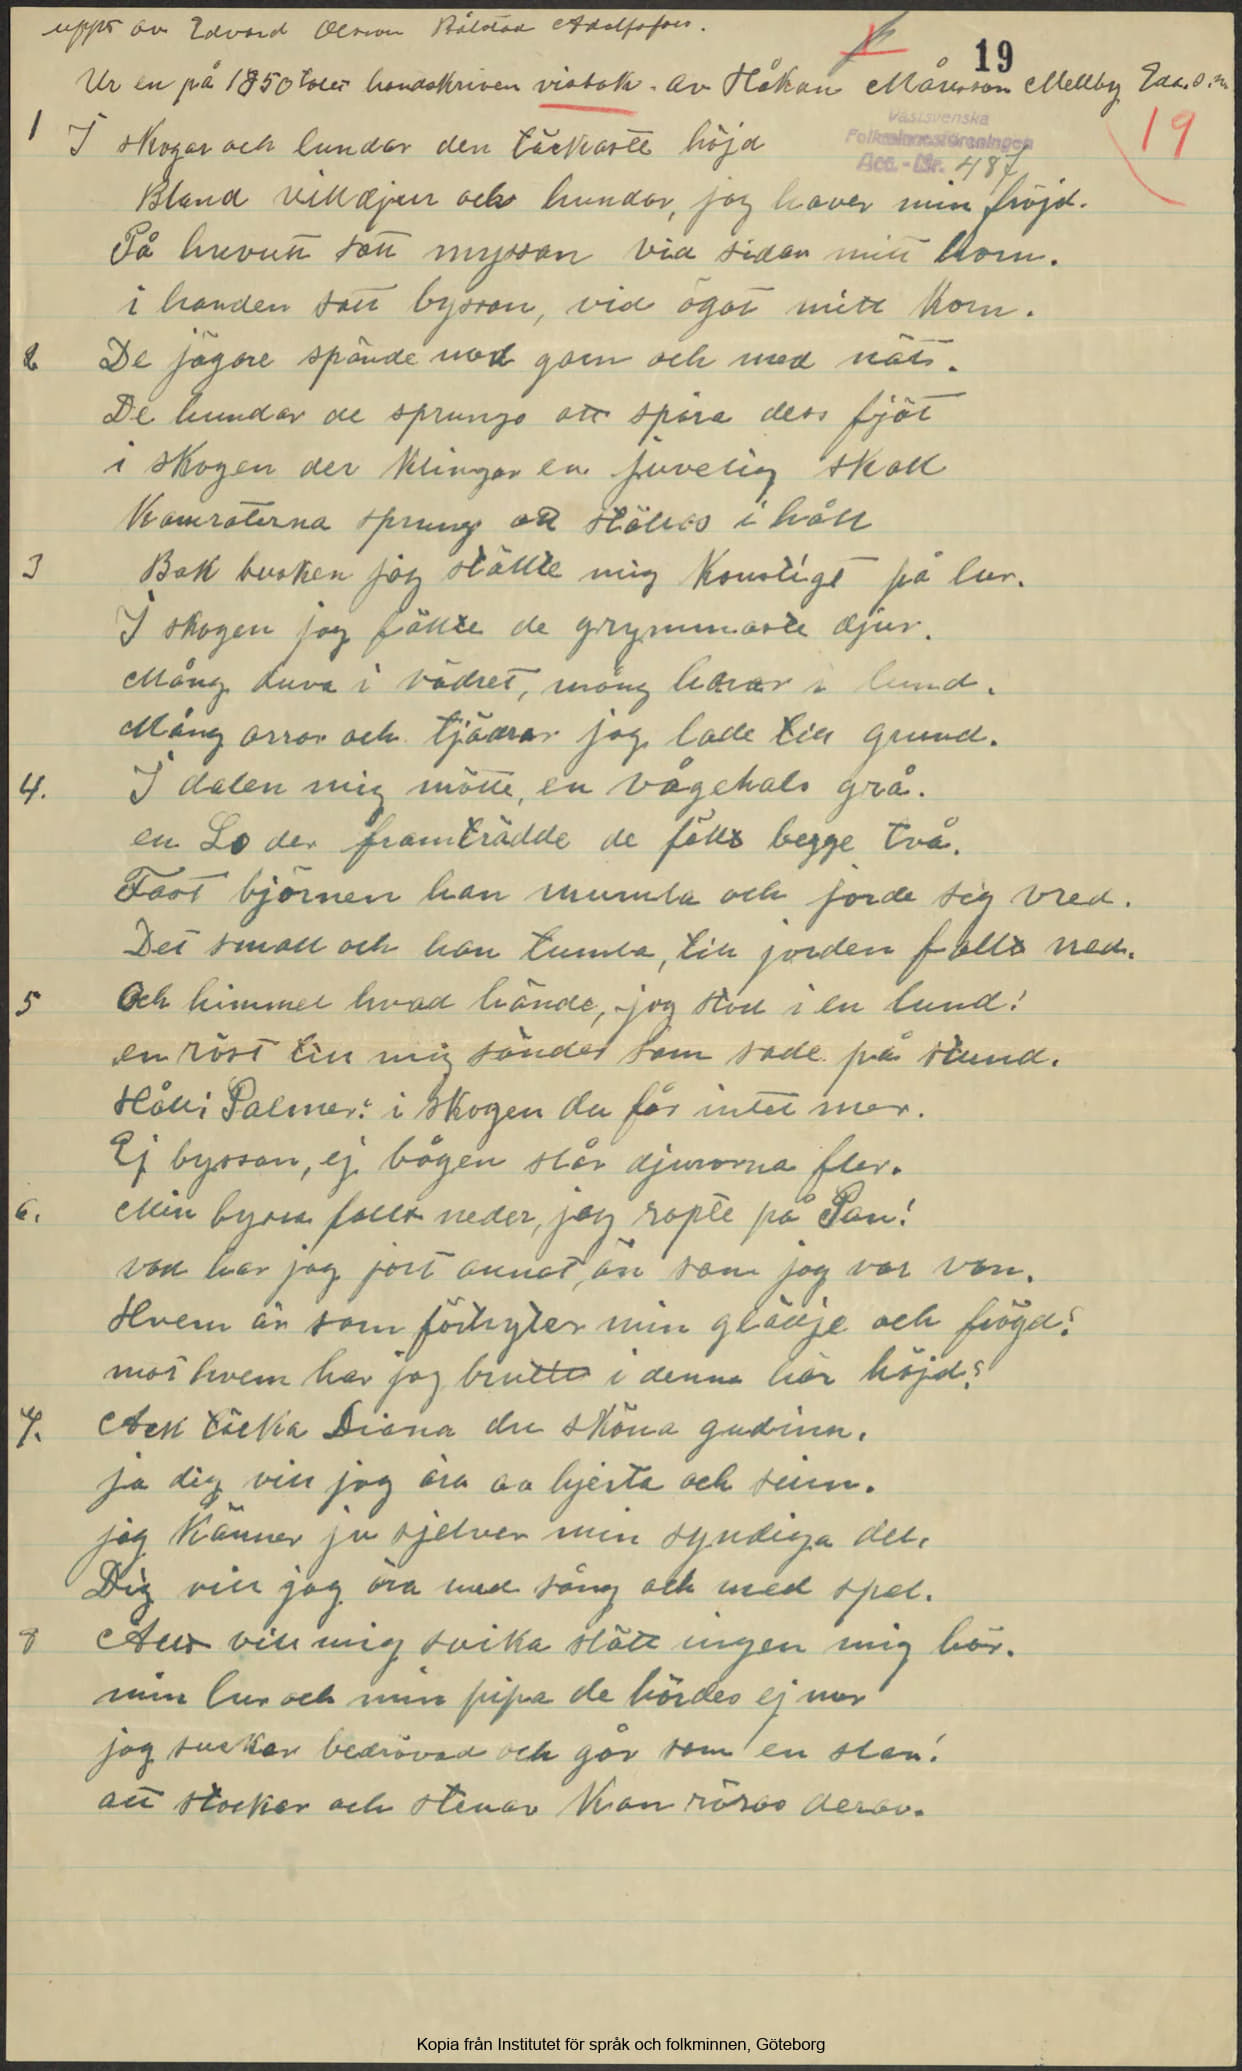 uppt av Edvard Olsson Bålstad Adolfsfors.
19
Ur en på 1850 talet handskriven visbok. av Håkan Månsson Mellby Eda. s.n.
Västsvenska
Folkminnesföreningen
Acc.-Nr. 487
19
1 I skogar och lundar den täckaste höjd
Bland villdjur och hundar, jag haver min fröjd.
På huvutt satt myssan vid sidan mitt horn.
i handen satt byssan, vid ögat mitt korn.
2 De jägare spände med garn och med nät.
De hundar de sprungo att spåra dess fjät
i skogen der klingar en juvelig skall
Kamraterna sprung att ställas i håll
3 Bak busken jag stälte mig konstigt på lur.
I skogen jag fälte de grymmaste djur.
Mång duva i vädret, mång harar i lund.
Mång orrar och tjädrar jag lade till grund.
4. I dalen mig mötte, en vågehals grå.
en Lo der framträdde de fälls begge två.
Fast björnen han mumla och jorde sig vred.
Det small och han tumla, till jorden falls ned.
5 Och himmel hvad hände, jag stod i en lund!
en röst till mig sändes som sade på stund.
Håll i Palmer: i skogen du får intet mer.
Ej byssan, ej bågen slår djurorna fler.
6. Min byssa falls neder, jag ropte på Pan!
vad har jag jort annat, än som jag var van.
Hvem är som förbyter min glädje och fröjd?
mot hvem har jag brutit i denna här höjd?
7. Ack täcka Diana du sköna gudinn.
ja dig vill jag ära av hjerta och sinn.
jag känner ju sjelver min syndiga del.
Dig vill jag ära med sång och med spel.
8 Allt vill mig svika slätt ingen mig hör.
min lur och min pipa de hördes ej mer
jag suckar bedrövad och går som en slav!
att stockar och stenar kan röras derav.
Kopia från Institutet för språk och folkminnen, Göteborg